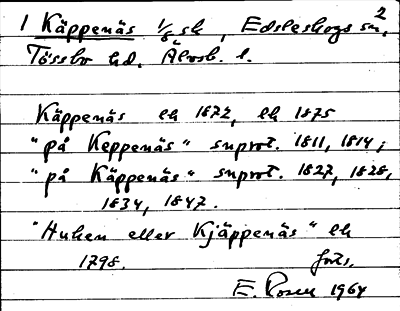 1 Käppenäs 1/8 sk, Edsleskogs sn, 2
Tössbo hd. Älvsb. l.
Käppenäs lk 1872, lk 1875
"på Keppenäs" snprot. 1811, 1814;
"på Käppenäs" snprot. 1827, 1828,
1834, 1847.
"Huken eller Kjäppenäs" lk
1798. forts.
E. Rosen 1964